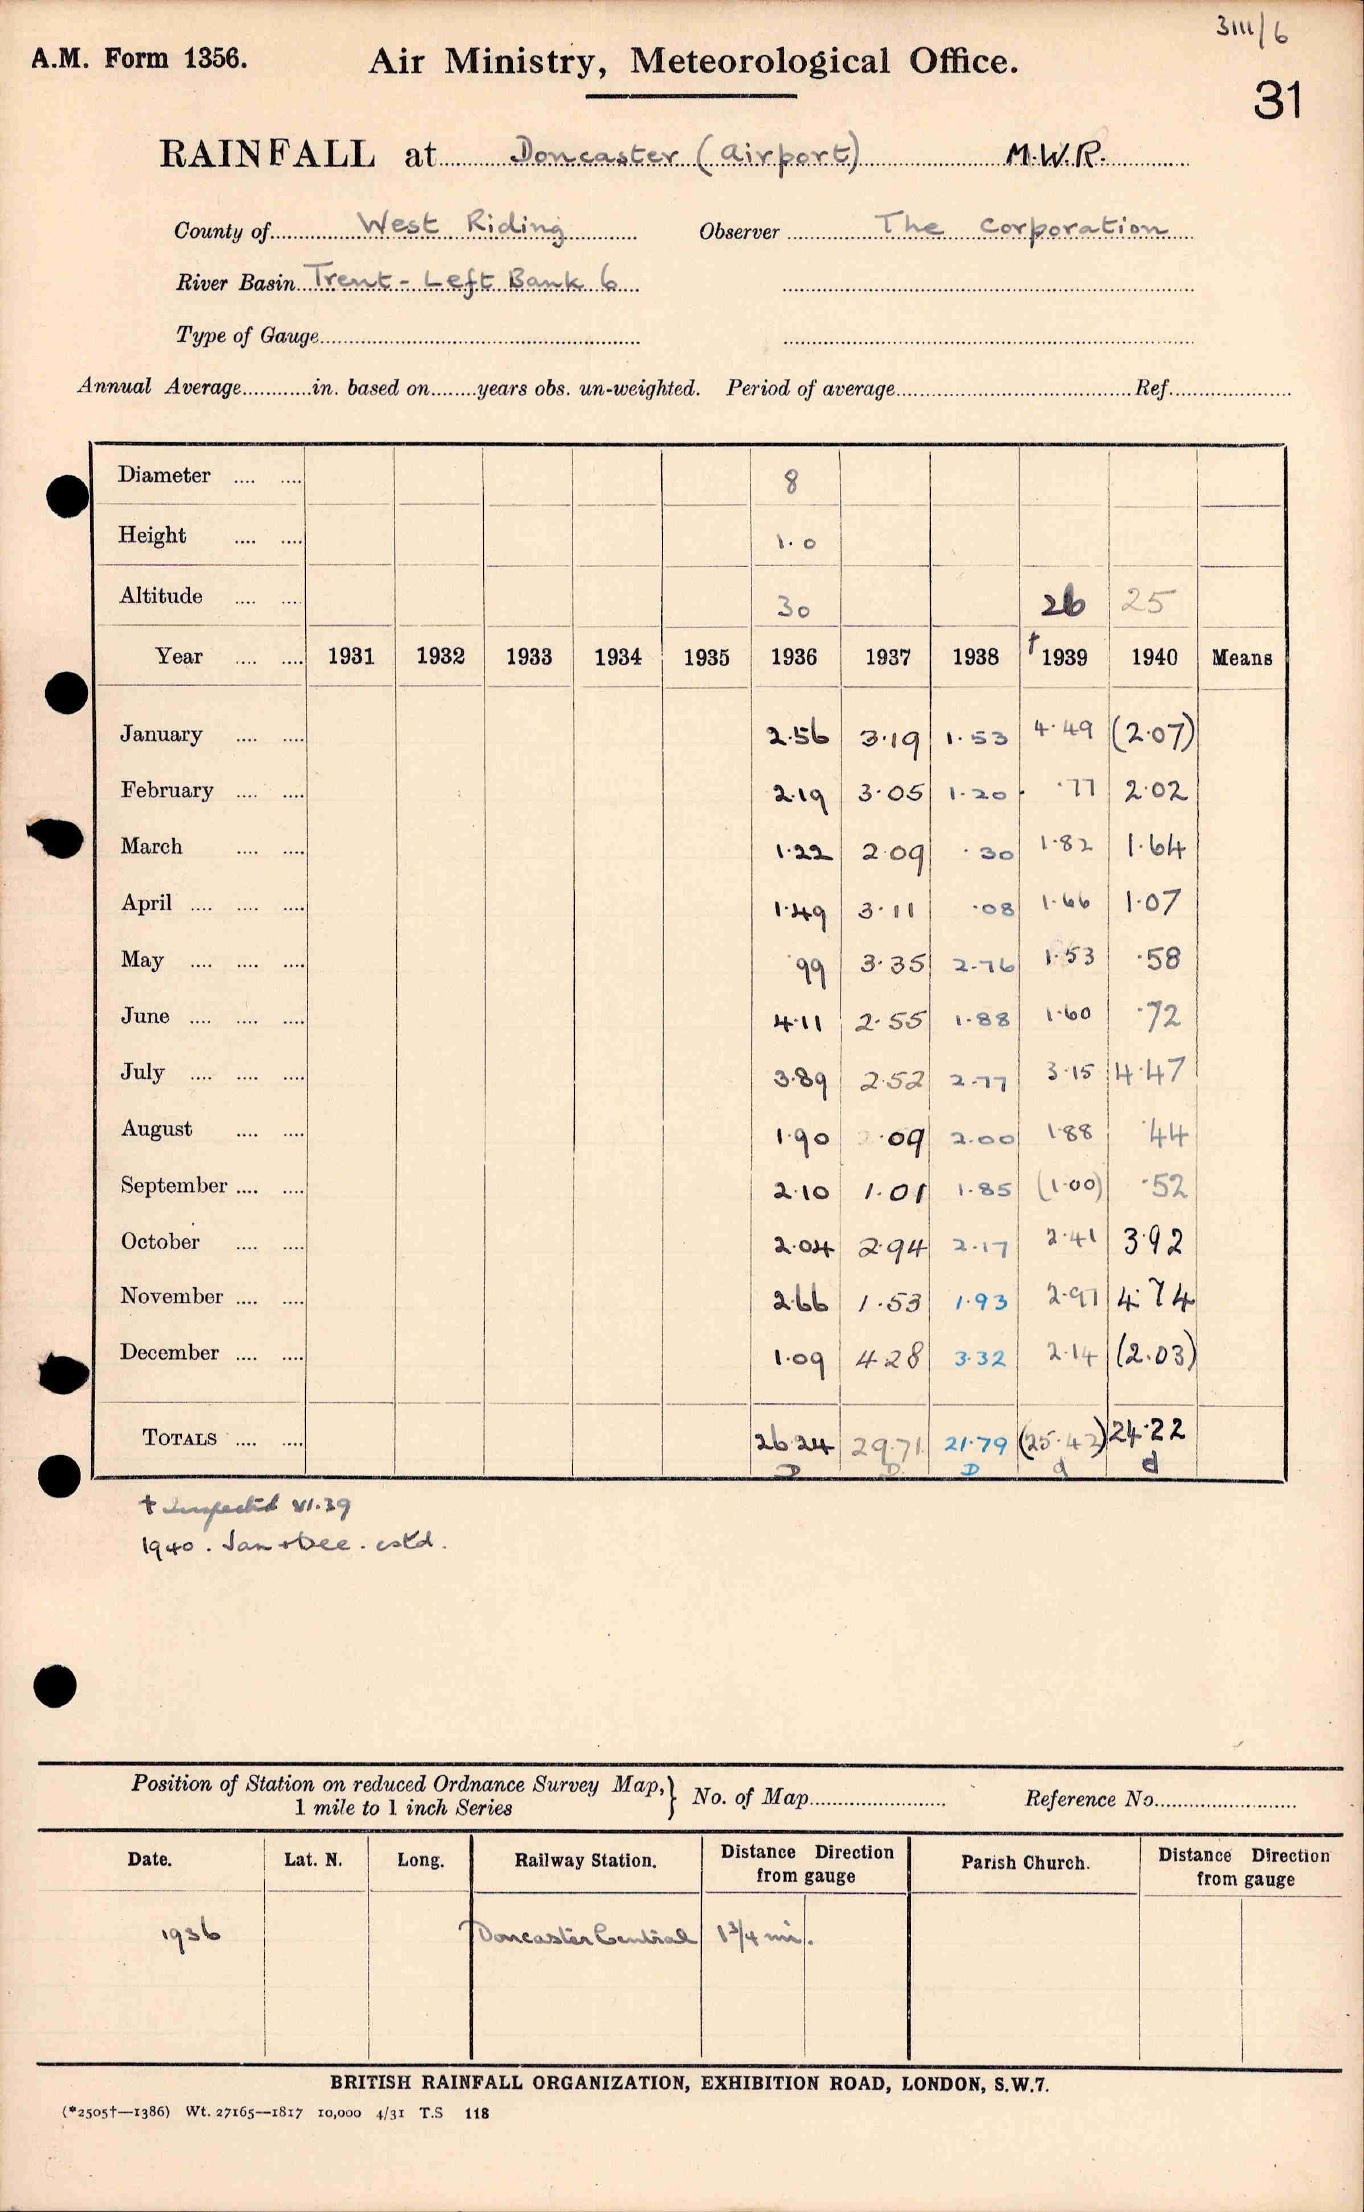 3111/6
A.M. Form 1356. Air Ministry, Meteorological Office.
31
RAINFALL at Doncaster (Airport) M.W.R.
County of West Riding Observer The Corporation
River Basin Trent - Left Bank 6
Type of Gauge
Annual Average in. based on years obs. un-weighted. Period of average Ref.
Diameter 8
Height 1.0
Altitude 30 26 25
Year 1931 1932 1933 1934 1935 1936 1937 1938 †1939 1940 Means
January 2.56 3.19 1.53 4.49 (2.07)
February 2.19 3.05 1.20 .77 2.02
March 1.22 2.09 .30 1.82 1.64
April 1.49 3.11 .08 1.66 1.07
May .99 3.35 2.76 1.53 .58
June 4.11 2.55 1.88 1.60 .72
July 3.89 2.52 2.77 3.15 4.47
August 1.90 .09 2.00 1.88 .44
September 2.10 1.01 1.85 (1.00) .52
October 2.04 2.94 2.17 2.41 3.92
November 2.66 1.53 1.93 2.97 4.74
December 1.09 4.28 3.32 2.14 (2.03)
TOTALS 26.24 29.71 21.79 (25.42) 24.22
D D D d d
† Inspected VI.39
1940. Jan + Dec. estd.
Position of Station on reduced Ordnance Survey Map, } No. of Map Reference No.
1 mile to 1 inch Series
Date. Lat. N. Long. Railway Station. Distance Direction from gauge Parish Church. Distance Direction from gauge
1936 Doncaster Central 1 3/4 mi.
BRITISH RAINFALL ORGANIZATION, EXHIBITION ROAD, LONDON, S.W.7.
(*2505†—1386) Wt. 27165—1817 10,000 4/31 T.S 118